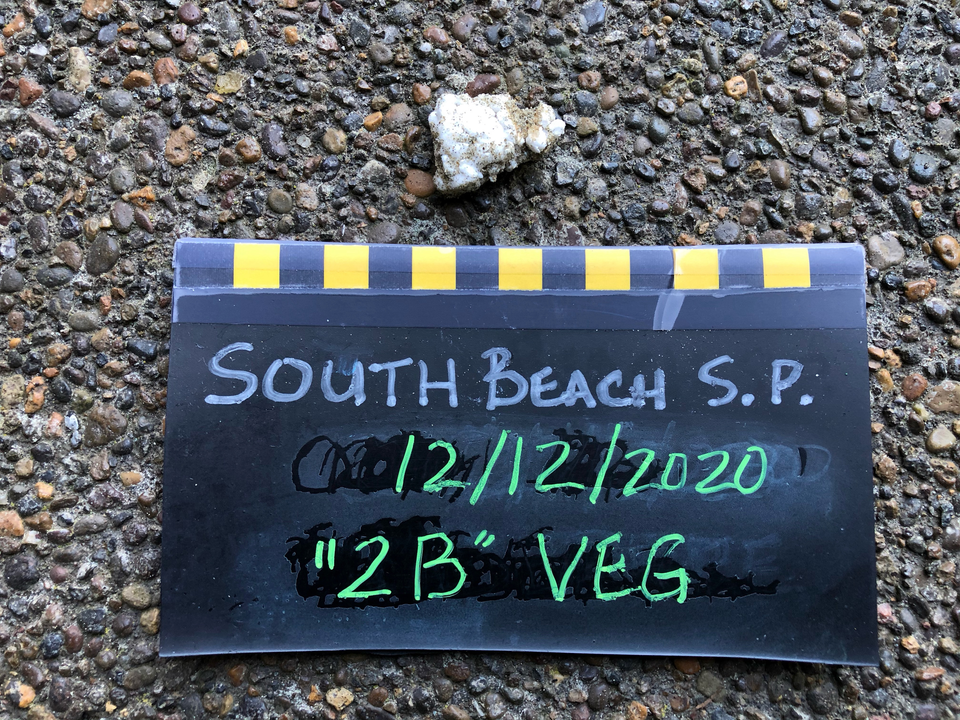 SOUTH BEACH S.P.
12/12/2020
"2B" VEG